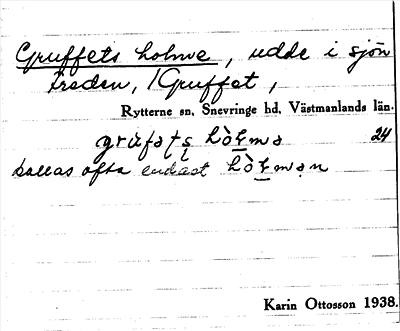 Gruffets holme, udde i sjön
Freden, /Gruffet,
Rytterne sn, Snevringe hd, Västmanlands län.
grùfəts hòlmə 24
kallas ofta endast hòlmən
Karin Ottosson 1938.